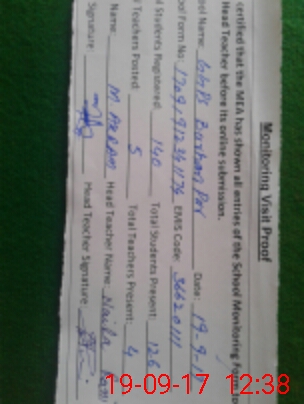 Monitoring Visit Proof
certified that the MEA has shown all entries of the School Monitoring Form
Head Teacher before its online submission.
ool Name: GGPS Date: 19-9-1
ool Form No: EMIS Code: 36620111
l Students Registered: 140 Total Students Present: 126
l Teachers Posted: 5 Total Teachers Present: 4
Name: M. AKRAM Head Teacher Name: Naila
Signature: Head Teacher Signature:
19-09-17 12:38